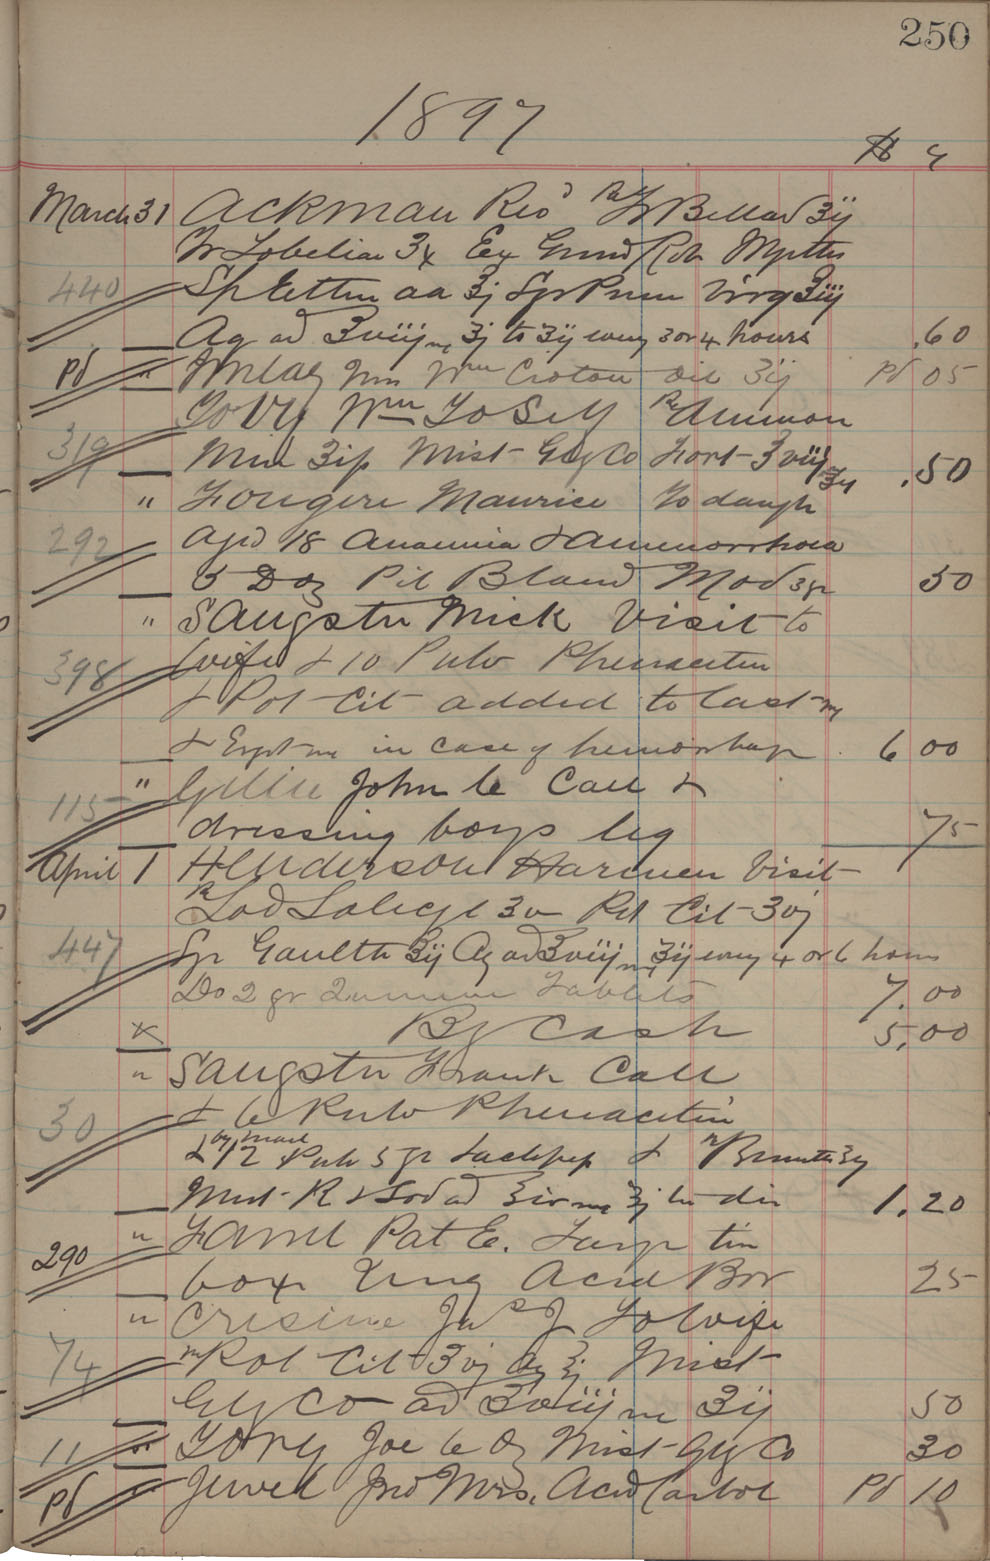 250
1897
$ c
March 31 Ackman Ricd Rx Tr Bellad ʒij
Tr Lobeliae ʒx Ex Grind Rob
440 Sp Ettin aa ʒj Syr Prun Virg ℥iij
Aq ad ℥viij m ʒj to ʒij every 3 or 4 hours .60
Pd " Wm Croton oil ʒij Pd 05
Wm To Self Rx Ammon
319 Mur ʒiss Mist Gly Co Fort ℥viij ʒij .50
" Fougere Maurice To daugh
292 Aged 18 Anaemia & Amenorrhoea
5 Doz Pil Blaud Mod 3 gr 50
" Saugstr Mick Visit to
398 wife & 10 Pulv Phenacetin
& Pot Cit added to last m
& Ergot m in case of hemorrhage 6 00
" Gillie John C Call &
115 dressing boys leg 75
April 1 Henderson Harmen Visit
Rx Sod Salicyl ʒv Pot Cit ʒvj
447 Syr Gaulth ℥ij Aq ad ℥viij m ʒij every 4 or 6 hours
Do 2 gr Quinine Tablets 7.00
x By Cash 5.00
" Saugstr Frank Call
30 & 6 Pulv Phenacetin
& by mail 12 Pulv 5 gr Lactpep & Rx Bismuth ʒij
Mist R & Sod ad ℥iv m ʒj ter die 1.20
290 " Pat E. Large tin
box Ung Acid Bor 25
" Jas J To Wife
74 Rx Pot Cit ʒvj Aq ℥j Mist
Gly Co ad ℥viij m ʒij 50
11 " Joe 6 oz Mist Gly Co 30
Pd " Jewel Jno Mrs. Acid Carbol Pd 10